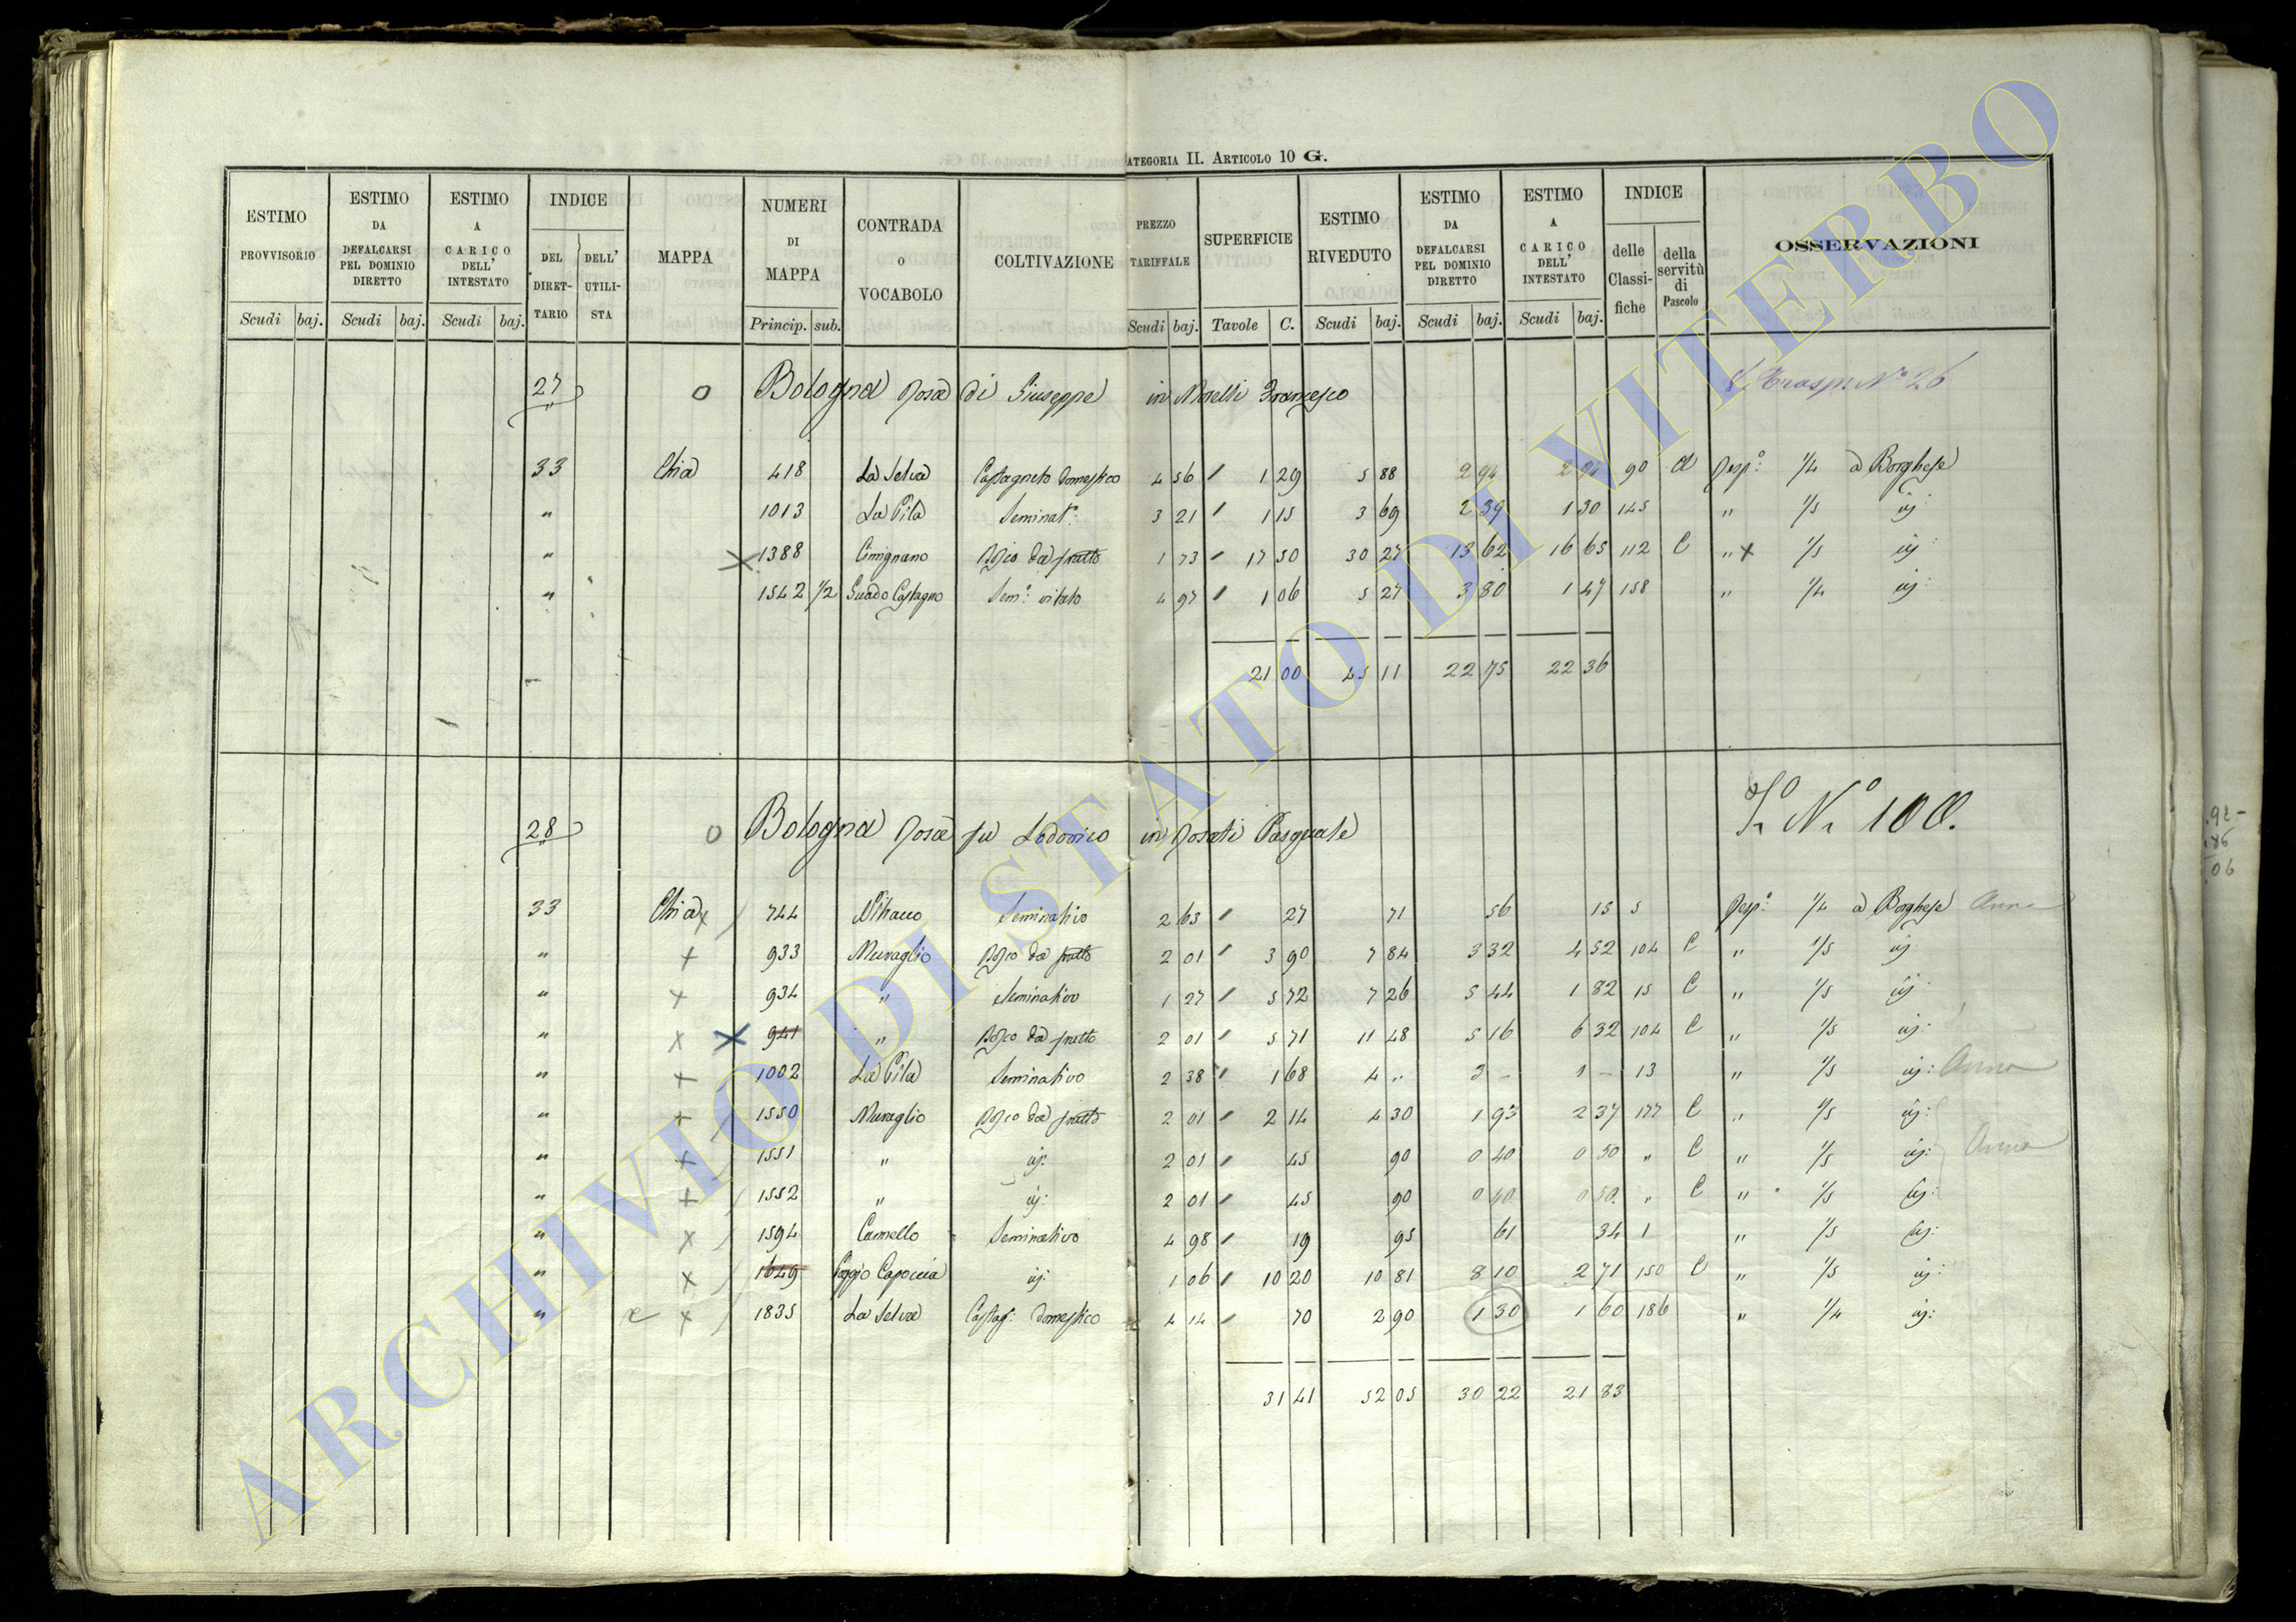 ATEGORIA II. ARTICOLO 10 G.
ESTIMO PROVVISORIO ESTIMO DA DEFALCARSI PEL DOMINIO DIRETTO ESTIMO A CARICO DELL' INTESTATO INDICE DEL DIRET-TARIO DELL' UTILI-STA MAPPA NUMERI DI MAPPA CONTRADA O VOCABOLO COLTIVAZIONE PREZZO TARIFFALE SUPERFICIE ESTIMO RIVEDUTO ESTIMO DA DEFALCARSI PEL DOMINIO DIRETTO ESTIMO A CARICO DELL' INTESTATO INDICE delle Classi-fiche della servitù di Pascolo OSSERVAZIONI
Scudi baj. Scudi baj. Scudi baj. Princip. sub. Scudi baj. Tavole C. Scudi baj. Scudi baj. Scudi baj.
27 O Bologna Rosa di Giuseppe in Morelli Francesco Trasp. N° 26
33 Chia 418 La Selva Castagneto domestico 4 56 1 29 5 88 2 94 2 94 90 Risp: 1/4 a Borghese
" 1013 La Pila Seminat: 3 21 1 15 3 69 2 39 1 30 145 " 1/5
" X 1388 Cimignano Bosco da frutto 1 73 17 50 30 27 13 62 16 65 112 C " x 1/5
" 1542 1/2 Guado Castagno Sem: vitato 4 97 1 06 5 27 3 80 1 47 158 " 1/4
21 00 45 11 22 75 22 36
28 O Bologna Rosa fu Lodovico in Rosati Pasquale N° 100.
33 Chia x 744 2 63 27 71 56 15 5 Risp: 1/4 a Borghese Anna
" x 933 Muraglio Bosco da frutto 2 01 3 90 7 84 3 32 4 52 104 C " 1/5
" x 934 " Seminativo 1 27 5 72 7 26 5 44 1 82 15 C " 1/5
" x X 941 " Bosco da frutto 2 01 5 71 11 48 5 16 6 32 104 C " 1/5
" x 1002 La Pila Seminativo 2 38 1 68 4 " 3 - 1 - 13 " 1/5 Anna
" x 1550 Muraglio Bosco da frutto 2 01 2 14 4 30 1 93 2 37 177 C " 1/5
" x 1551 " 2 01 45 90 0 40 0 50 " C " 1/5 Anna
" x 1552 " 2 01 45 90 0 40 0 50 " C " 1/5
" x 1594 Camello Seminativo 4 98 19 95 61 34 1 " 1/5
" x 1649 Poggio Capoccia 1 06 10 20 10 81 8 10 2 71 150 C " 1/5
" x 1835 La Selva Castag: domestico 4 14 70 2 90 1 30 1 60 186 " 1/4
31 41 52 05 30 22 21 83
ARCHIVIO DI STATO DI VITERBO